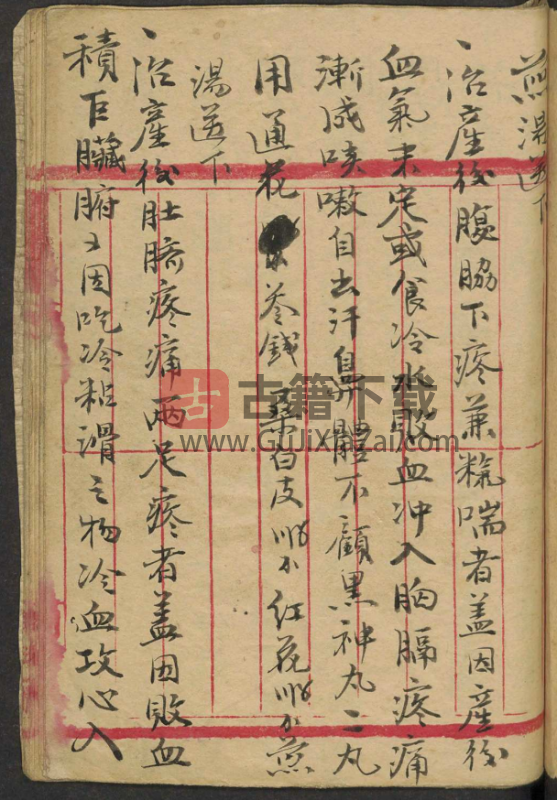 煎湯送下
、治產後腹脇下疼兼粰喘者盖因產後
血氣未定或食冷水敗血冲入胸膈疼痛
漸成咳嗽自出汗鼻體不顧黑神丸二丸
用通花 叁錢桑白皮 红花 煎
湯送下
、治產後肚臍疼痛兩足疼者盖因敗血
積百臟腑又因吃冷粗滑之物冷血攻心入
古籍下载
www.GuJiXiaZai.com